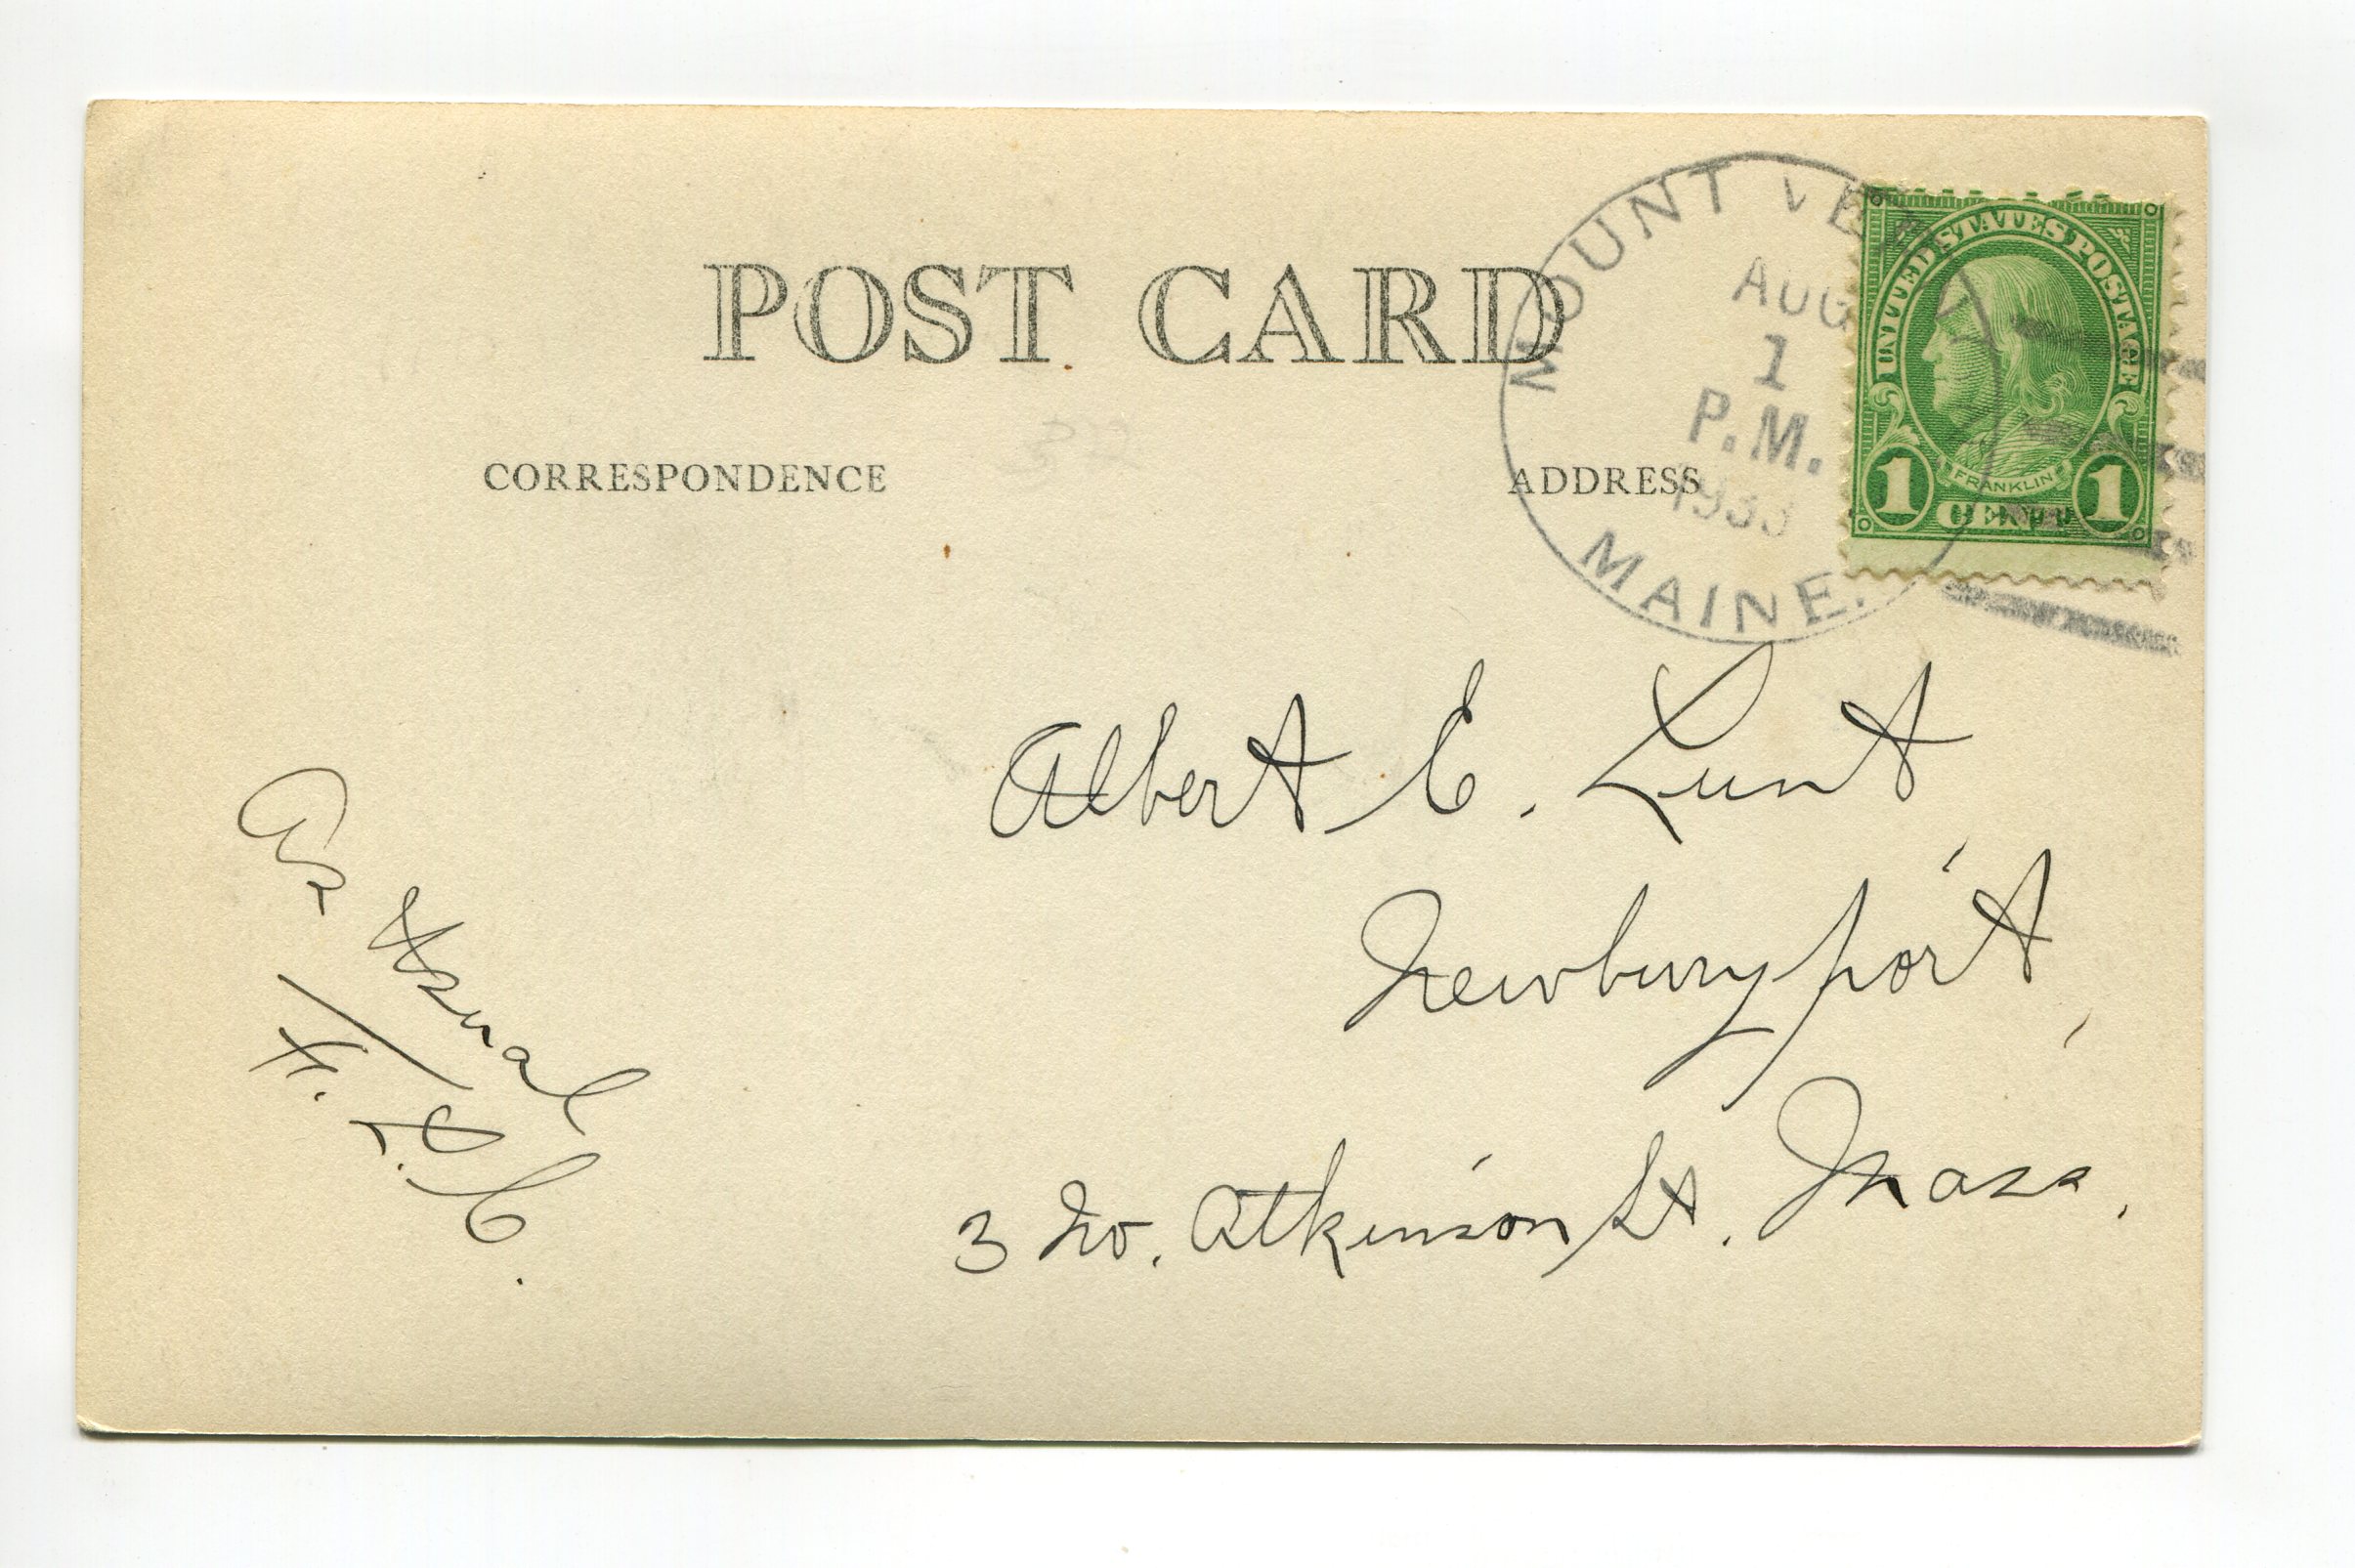 POST CARD
CORRESPONDENCE
ADDRESS
MOUNT VE
AUG
1
P.M.
1933
MAINE.
UNITED STATES POSTAGE
FRANKLIN
1 CENT 1
Albert E. Lunt
Newburyport,
3 No. Atkinson St. Mass.
As Usual
H.